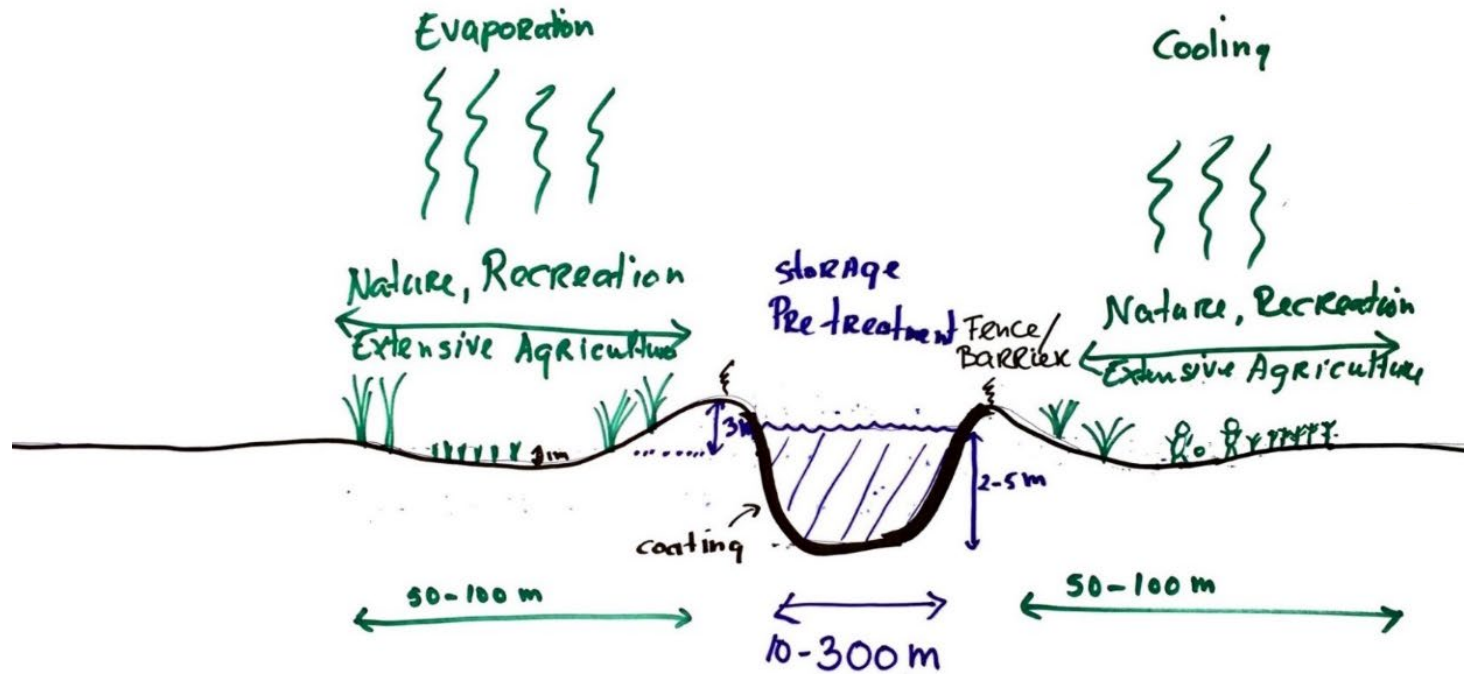 Evaporation
Cooling
Nature, Recreation
Extensive Agriculture
Storage
Pretreatment
Fence/
Barrier
Nature, Recreation
Extensive Agriculture
3m
2-5m
coating
50-100 m
10-300 m
50-100 m